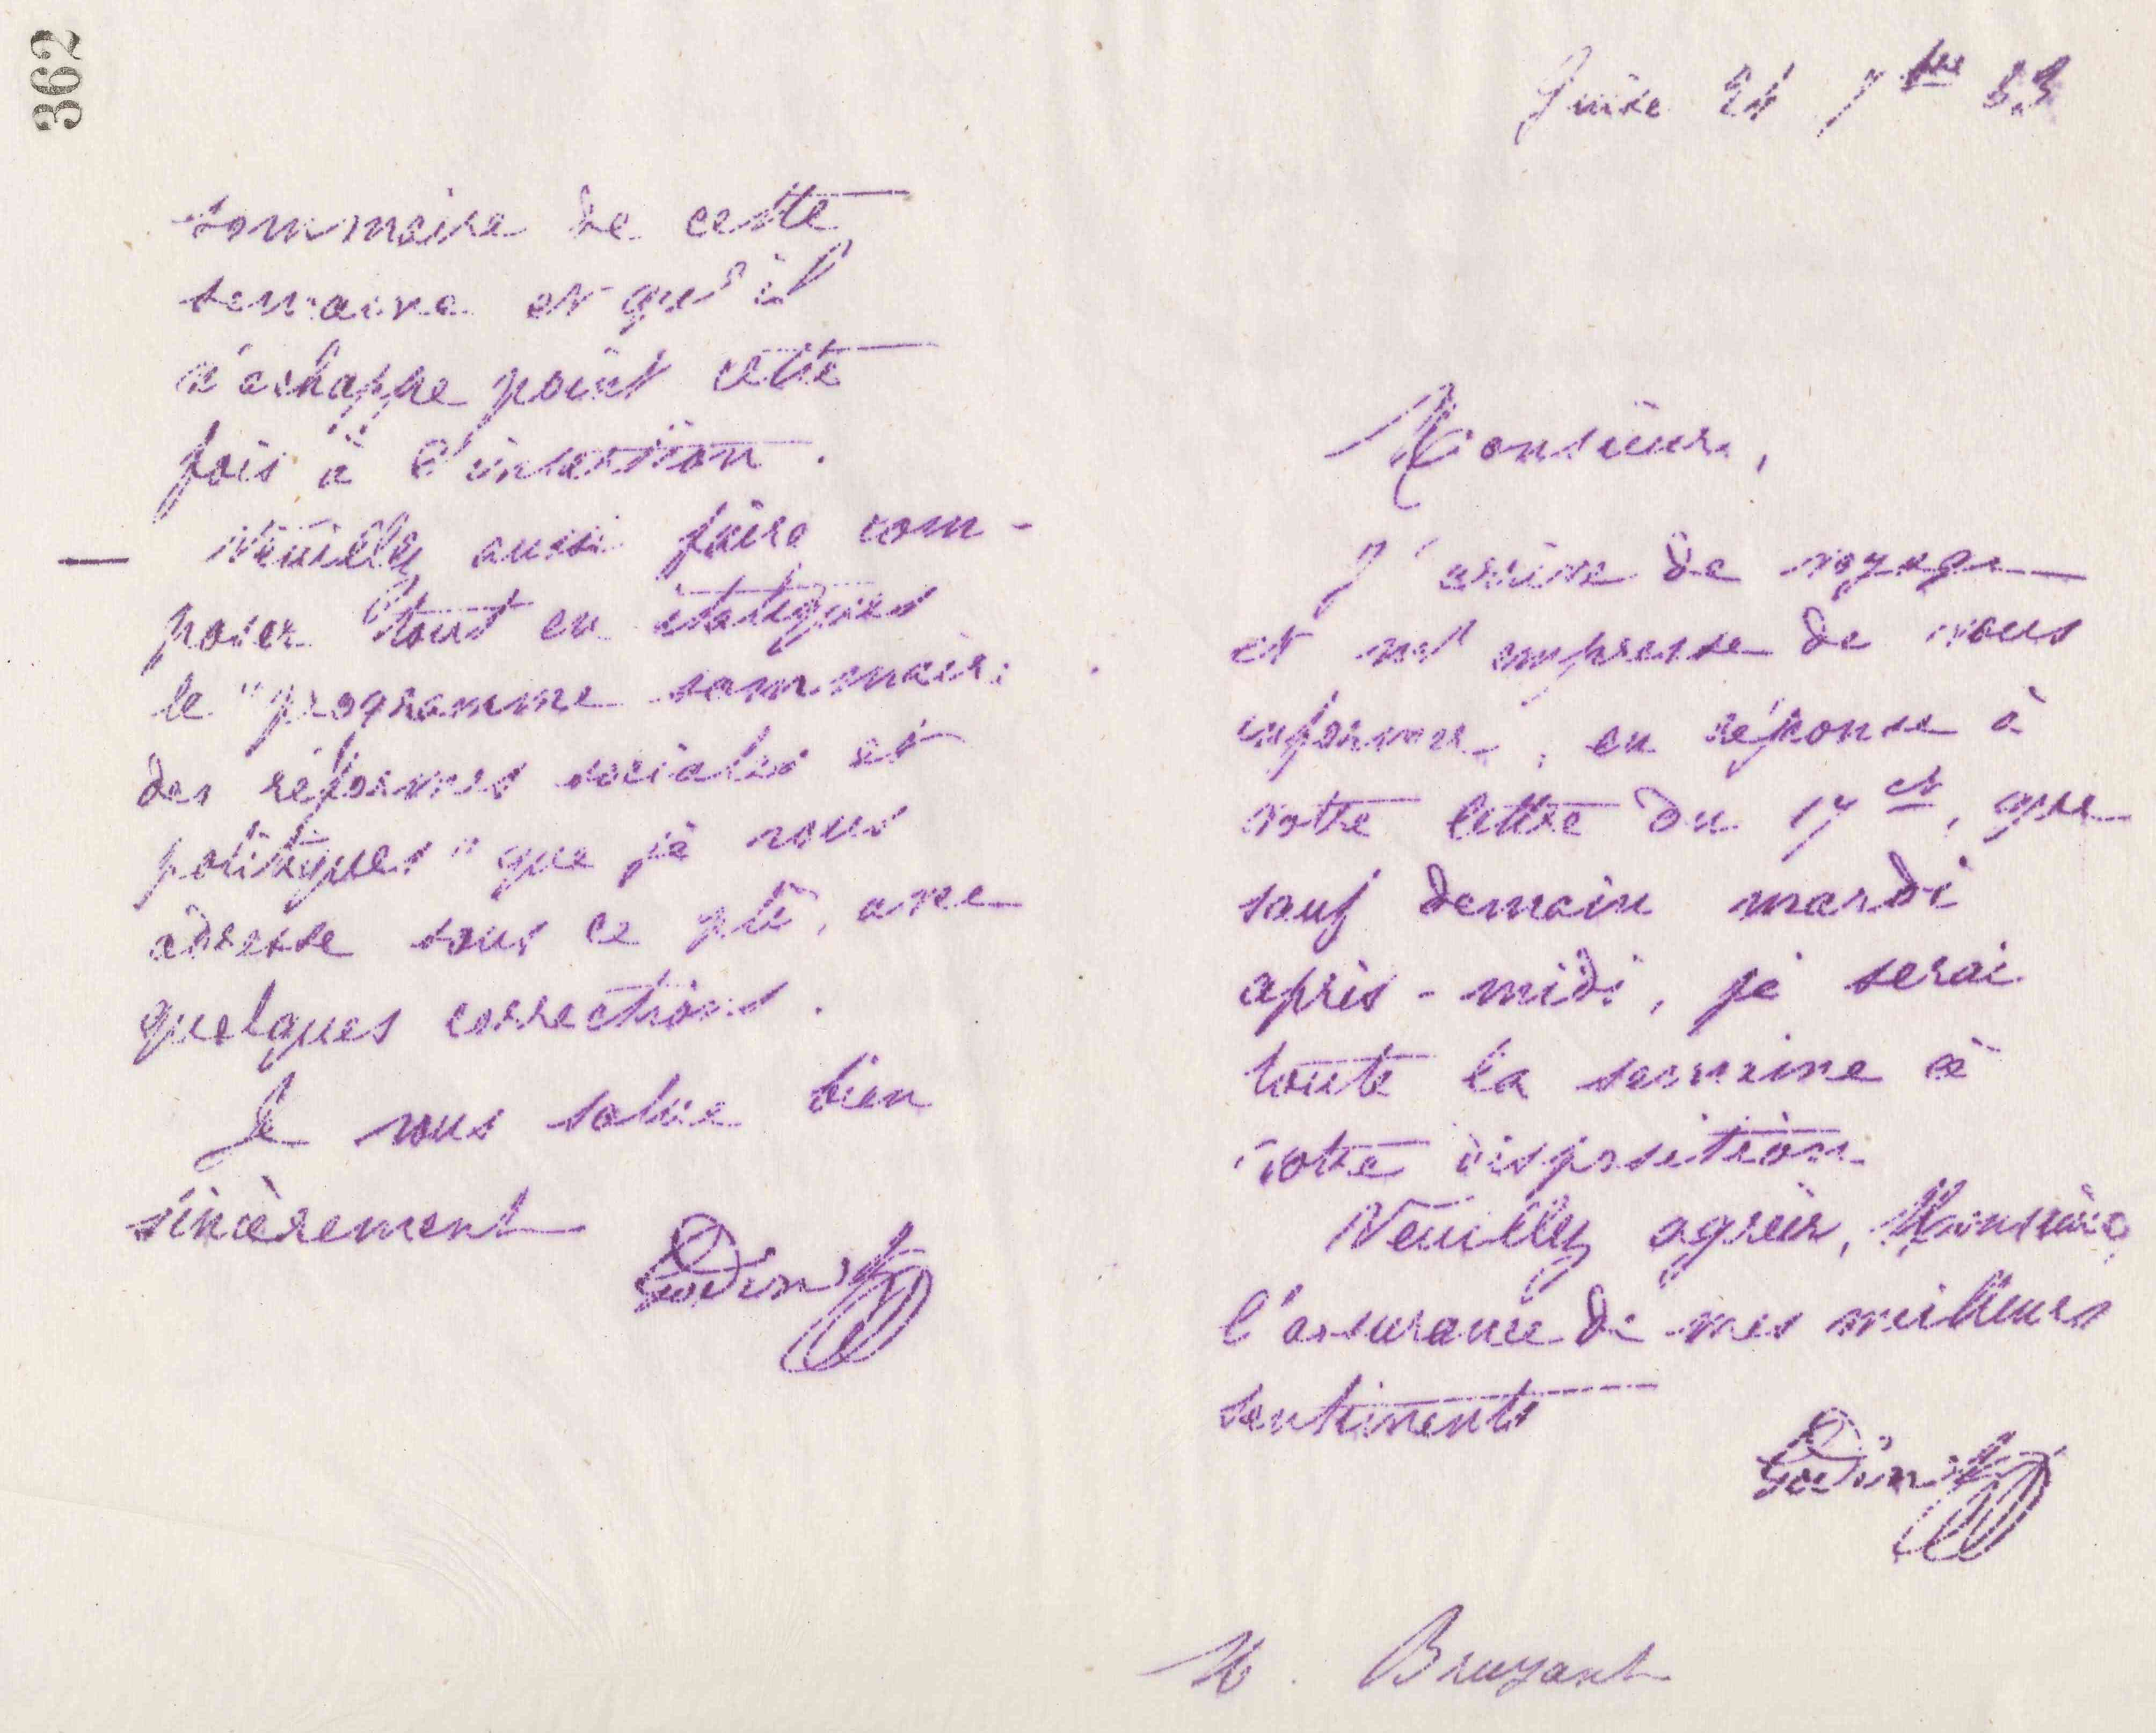 362
sommaire de cette
semaine et qu'il
n'échappe point cette
fois à l'insertion.
— Veuillez aussi faire com-
poser tout en italiques
le "programme sommaire
des réformes sociales et
politiques" que je vous
adresse sous ce pli, avec
quelques corrections.
Je vous salue bien
sincèrement
Godin
Guise 24 7bre 83
Monsieur,
J'arrive de voyage
et m'empresse de vous
informer, en réponse à
votre lettre du 17 ct, que
sauf demain mardi
après-midi, je serai
toute la semaine à
votre disposition
Veuillez agréer, Monsieur,
l'assurance de mes meilleurs
sentiments
Godin
M. Bruyant